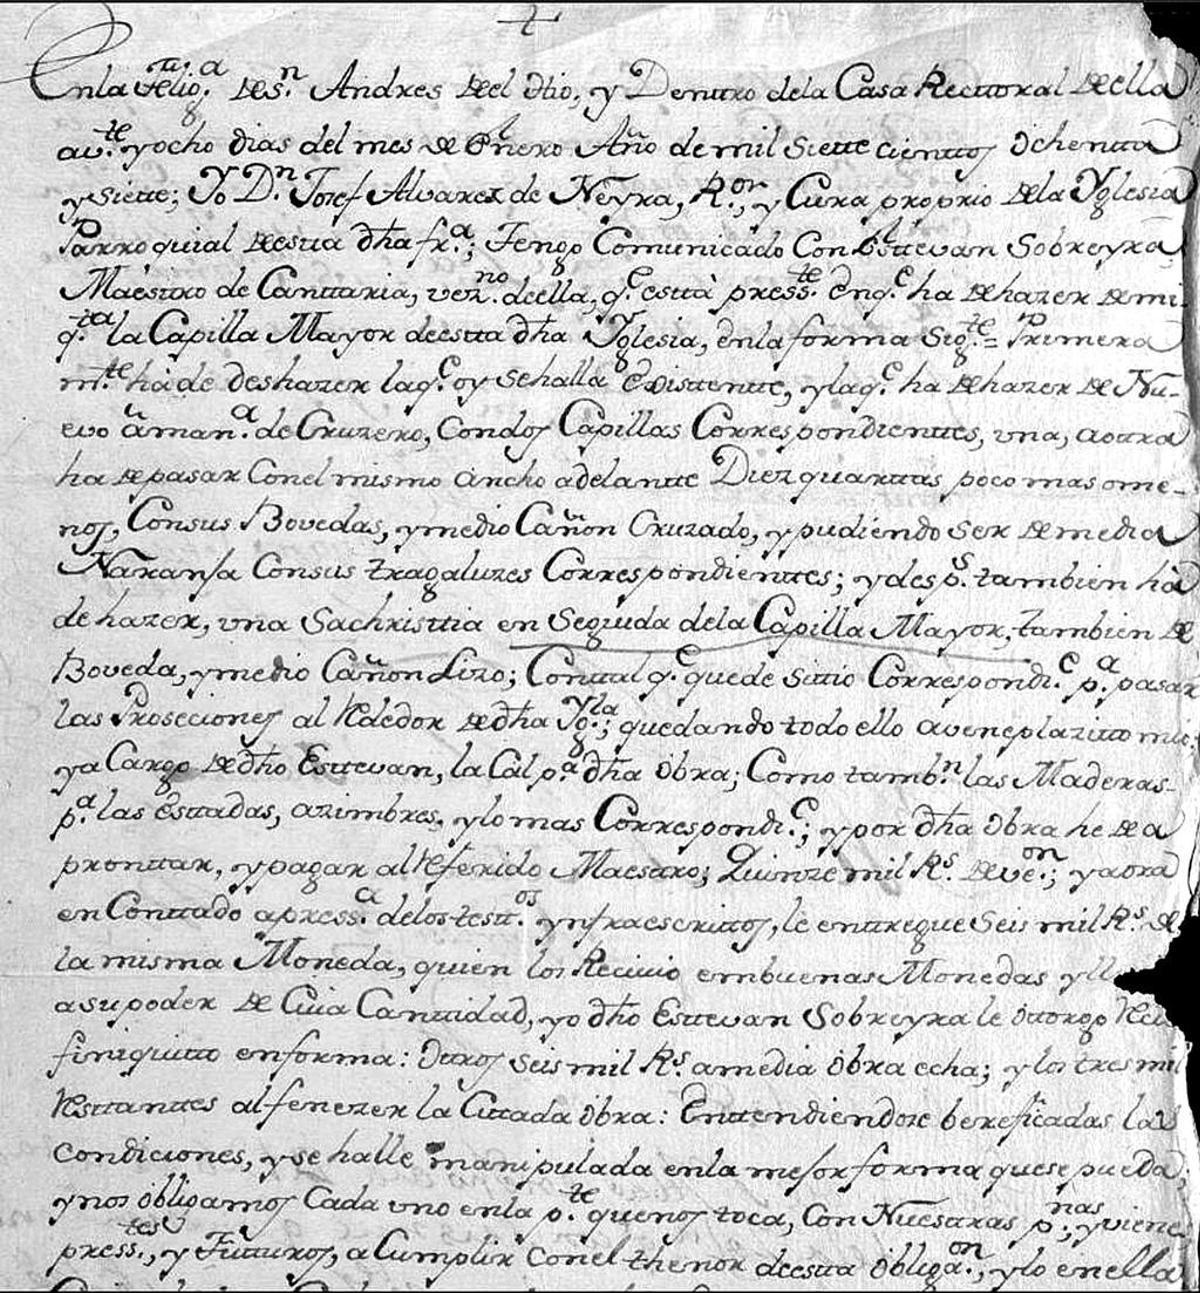 En la felig.ª de S.n Andres de el dho, y Dentro dela Casa Recttoral de ella
a v.te y ocho dias del mes de Enero Año de mil Siette cienttos ochentta
y siette; Yo D.n Josef Alvarez de Neyra, R.or, y Cura proprio de la Yglesia
Parroquial de estta dha fr.ª; Tengo Comunicado Con Esttevan Sobreyra,
Maèstro de Canttaria, vez.no de ella, q.e esttà press.te en q.e ha de hazer de mi
q.ta la Capilla Mayor de estta dha Yglesia, en la forma Sig.te = Primera
m.te hà de deshazer la q.e oy se halla Existtente, y la q.e ha de hazer de Nu-
evo à man.ª de Cruzero, Con dos Capillas Correspondienttes, vna, a otra
ha de pasar Con el mismo ancho adelantte Diez quarttas poco mas o me-
nos, Con sus Bovedas, y medio Cañon Cruzado, y pudiendo ser de media
Naranja Con sus tragaluzes Correspondienttes; y desp.s tambien hà
de hazer, vna Sachristtia en Seguida de la Capilla Mayor, tambien de
Boveda, y medio Cañon Lizo; Con tal q.e quede sittio Correspondi.e p.ª pasar
las Proseciones al Rededor de dha Yg.la; quedando todo ello a veneplazitto mio
y a Cargo de dho Esttevan, la Cal p.ª dha obra; Como tamb.n las Maderas
p.ª las Esttadas, azimbres, y lo mas Correspondi.e; y por dha obra he de a
pronttar, y pagar al Referido Maestro; Quinze mil R.s de ve.on; y aora
en Conttado a press.ª de los testt.os ynfraescrittos, le enttregue Seis mil R.s de
la misma Moneda, quien los Recivio em buenas Monedas y
a su poder de Cuia Canttidad, yo dho Esttevan Sobreyra le ottorgo
finiquitto en forma: Ottros seis mil R.s a media obra echa; y los tres mil
Resttanttes al fenezer la Cittada obra: Enttendiendose bereficadas las
condiciones, y se halle manipulada en la mejor forma que se pueda;
y nos obligamos Cada uno en la p.te que nos toca, Con Nuestras p.nas, y viene
press.tes, y Futturos, a Cumplir con el thenor de estta obliga.on, y lo en ella